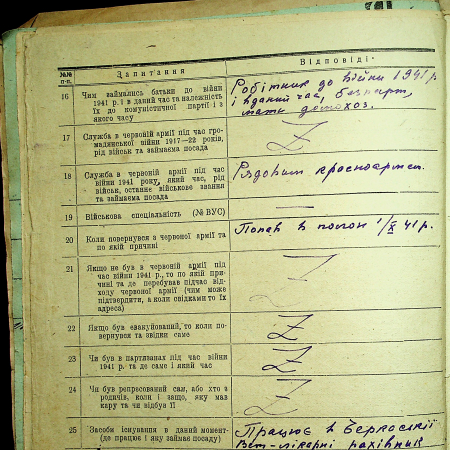 №№ п-п. Запитання Відповіді
16 Чим займались батьки до війни
1941 р. і в даний час та належність
їх до комуністичної партії і з
якого часу
Робітник до війни 1941 р.
і в даний час, безпарт,
мати домохоз.
17 Служба в червоній армії під час гро-
мадянської війни 1917—22 років,
рід військ та займаєма посада
Z
18 Служба в червоній армії під час
війни 1941 року, який час, рід
військ, останнє військове звання
та займаєма посада
Рядовим красноармєц.
19 Військова спеціяльність (№ ВУС)
—
20 Коли повернувся з червоної армії та
по якій причині
Попав в полон 1/X 41 р.
21 Якщо не був в червоній армії під
час війни 1941 р., то по якій при-
чині та де перебував підчас від-
ходу червоної армії (чим може
підтвердити, а коли свідками то їх
адреса)
Z
22 Якщо був евакуйований, то коли по-
вернувся та звідки саме
Z
23 Чи був в партизанах під час війни
1941 р. та де саме і який час
Z
24 Чи був репресований сам, або хто з
родичів, коли і защо, яку мав
кару та чи відбув її
Z
25 Засоби існування в даний момент-
(де працює і яку займає посаду)
Працює в Черкаській
Вет-лікарні рахівник